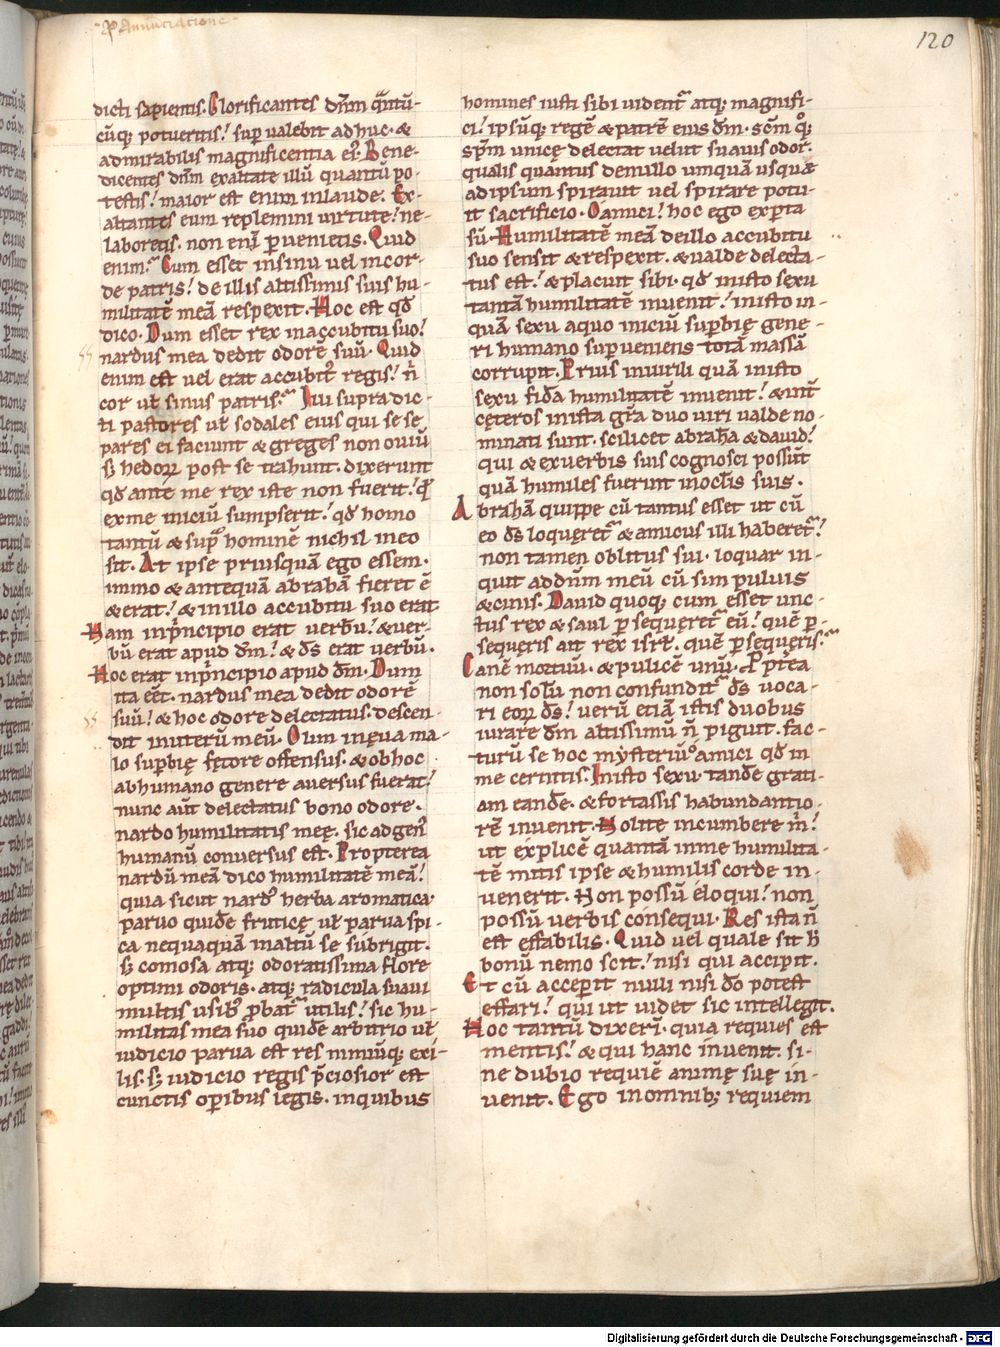 Annunciatione
120
dicti sapientis. Glorificantes dn̄m quātū-
cūq; potueritis! sup̱ valebit adhuc. &
admirabilis magnificentia ei᾿. Bene-
dicentes dn̄m exaltate illū quantū po-
testis! maior est enim in laude. Ex-
altantes eum replemini virtute! ne
laboretis. non eni p̱uenietis. Quid
enim? Cum esset in sinu uel in cor-
de patris! de illis altissimis suis hu-
militatē meā respexit. Hoc est qđ
dico. Dum esset rex in accubitu suo!
nardus mea dedit odorē suū. Quid
enim est uel erat accubit᾿ regis! n̄
cor uł sinus patris? Illi supra dic-
ti pastores uł sodales eius qui se se
pares ei faciunt & greges non ouiū
s; hedoꝝ post se trahunt. dixerunt
qđ ante me rex iste non fuerit! qđ
ex me iniciū sumpserit! qđ homo
tantū & sup᾿ hominē nichil in eo
sit. At ipse priusquā ego essem.
immo & antequā abrahā fieret ē
& erat! & in illo accubitu suo erat
Nam in p̱ncipio erat uerbū! & uer-
bū erat apud dm̄! & ds̄ erat uerbū.
Hoc erat in p̱ncipio apud dm̄. Dum
ita eēt. nardus mea dedit odorē
suū! & hoc odore delectatus. descen-
dit in uterū meū. Cum in ęua ma-
lo sup̱bię fętore offensus. & ob hoc
ab humano genere auersus fuerat!
nunc aūt delectatus bono odore.
nardo humilitatis meę. sic ad gen᾿
humanū conuersus est. Propterea
nardū meā dico humilitatē meā!
quia sicut nard᾿ herba aromatica.
paruo quidē fruticę uł parua spi-
ca nequaquā in altū se subrigit.
s; comosa atq; odoratissima flore
optimi odoris. atq; radicula suaui
multis usib᾿ p̱bat᾿ utilis! sic hu-
militas mea suo quidē arbitrio uł
iudicio parua est res nimiūq; exi-
lis. s; iudicio regis p̄ciosior est
cunctis op̱ibus legis. in quibus
homines iusti sibi uident᾿ atq; magnifi-
ci! ipsūq; regē & patrē eius dm̄. scm̄ q᾿q;
sp̄m unicę delectat uelut suauis odor.
qualis quantus de nullo umquā usquā
ad ipsum spirauit uel spirare potu-
it sacrificio. O amici! hoc ego exp̱ta
sū. Humilitatē meā de illo accubitu
suo sensit & respexit. & ualde delecta-
tus est! & placuit sibi. qđ in isto sexu
tantā humilitatē inuenit! in isto in-
quā sexu a quo iniciū sup̱bię gene-
ri humano sup̱ueniens totā massā
corrupit. Prius in uirili quā in isto
sexu fida humilitatē inuenit! & int̄
cęteros in ista gr̄a duo uiri ualde no-
minati sunt. scilicet abrahā & dauid!
qui & ex uerbis suis cognosci possūt
quā humiles fuerint in oclis suis.
Abrahā quippe cū tantus esset ut cū
eo ds̄ loqueret᾿ & amicus illi haberet᾿!
non tamen oblitus sui. loquar in-
quit ad dnm meū cū sim puluis
& cinis. Dauid quoq; cum esset unc-
tus rex & saul p̱sequeret᾿ eū! quē p̱-
sequeris ait rex isrł. quē p̱sequeris?
Canē mortuū. & pulicē unū. Ppt̄ea
non solū non confundit᾿ ds̄ uoca-
ri eoꝝ ds̄! uerū etiā istis duobus
iurare dm̄ altissimū n̄ piguit. fac-
turū se hoc mysteriū o amici qđ in
me cernitis. In isto sexu tandē grati-
am eandē. & fortassis habundantio-
rē inuenit. Nolite incumbere m̄!
ut explicē quantā in me humilita-
tē mitis ipse & humilis corde in-
uenerit. Non possū eloqui! non
possū uerbis consequi. Res ista n̄
est effabilis. Quid uel quale sit h̄
bonū nemo scit! nisi qui accipit.
Et cū acceperit nulli nisi dō potest
effari! qui ut uidet sic intellegit.
Hoc tantū dixeri. quia requies est
mentis! & qui hanc inuenit. si-
ne dubio requiē animę suę in-
uenit. Ego in omnib; requiem
Digitalisierung gefördert durch die Deutsche Forschungsgemeinschaft - DFG